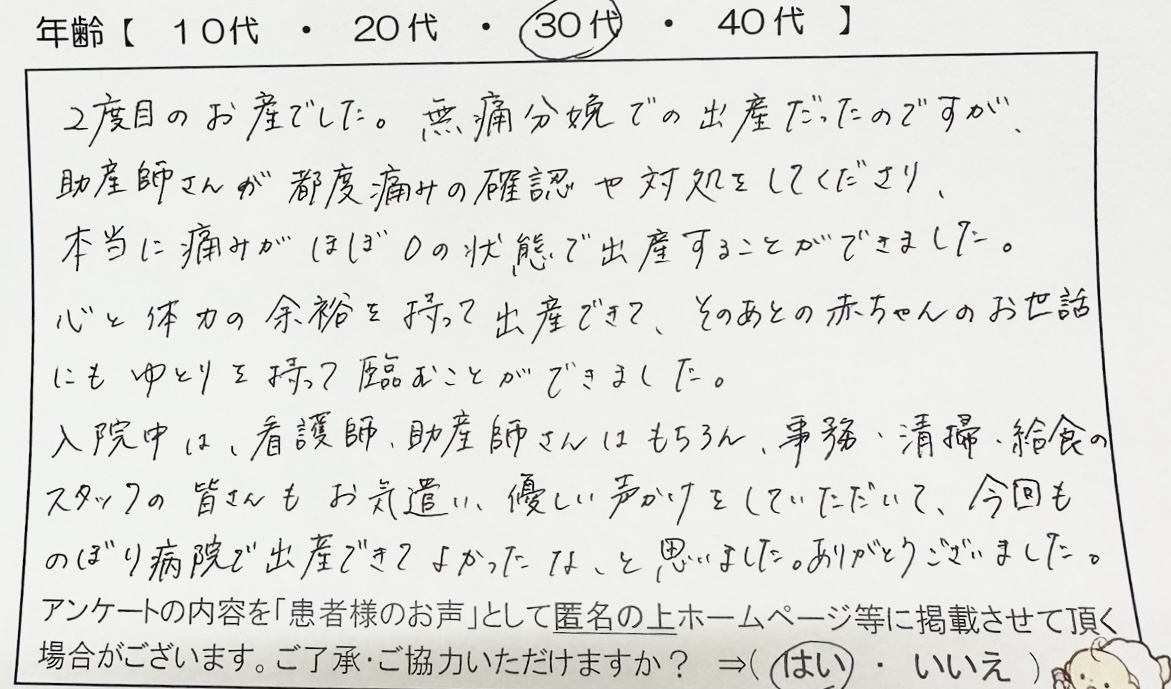 年齢【 10代 ・ 20代 ・ 30代 ・ 40代 】
2度目のお産でした。無痛分娩での出産だったのですが、
助産師さんが都度痛みの確認や対処をしてくださり、
本当に痛みがほぼ0の状態で出産することができました。
心と体力の余裕を持って出産できて、そのあとの赤ちゃんのお世話
にもゆとりを持って臨むことができました。
入院中は、看護師、助産師さんはもちろん、事務・清掃・給食の
スタッフの皆さんもお気遣い、優しい声かけをしていただいて、今回も
のぼり病院で出産できてよかったな、と思いました。ありがとうございました。
アンケートの内容を「患者様のお声」として匿名の上ホームページ等に掲載させて頂く
場合がございます。ご了承・ご協力いただけますか？ ⇒( はい ・ いいえ )